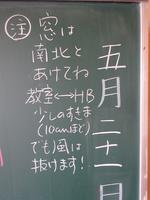 五月二十一日
㊟ 窓は
南北と
あけてね
教室⟷HB
少しのすきま
(10cmほど)
でも風は
抜けます!